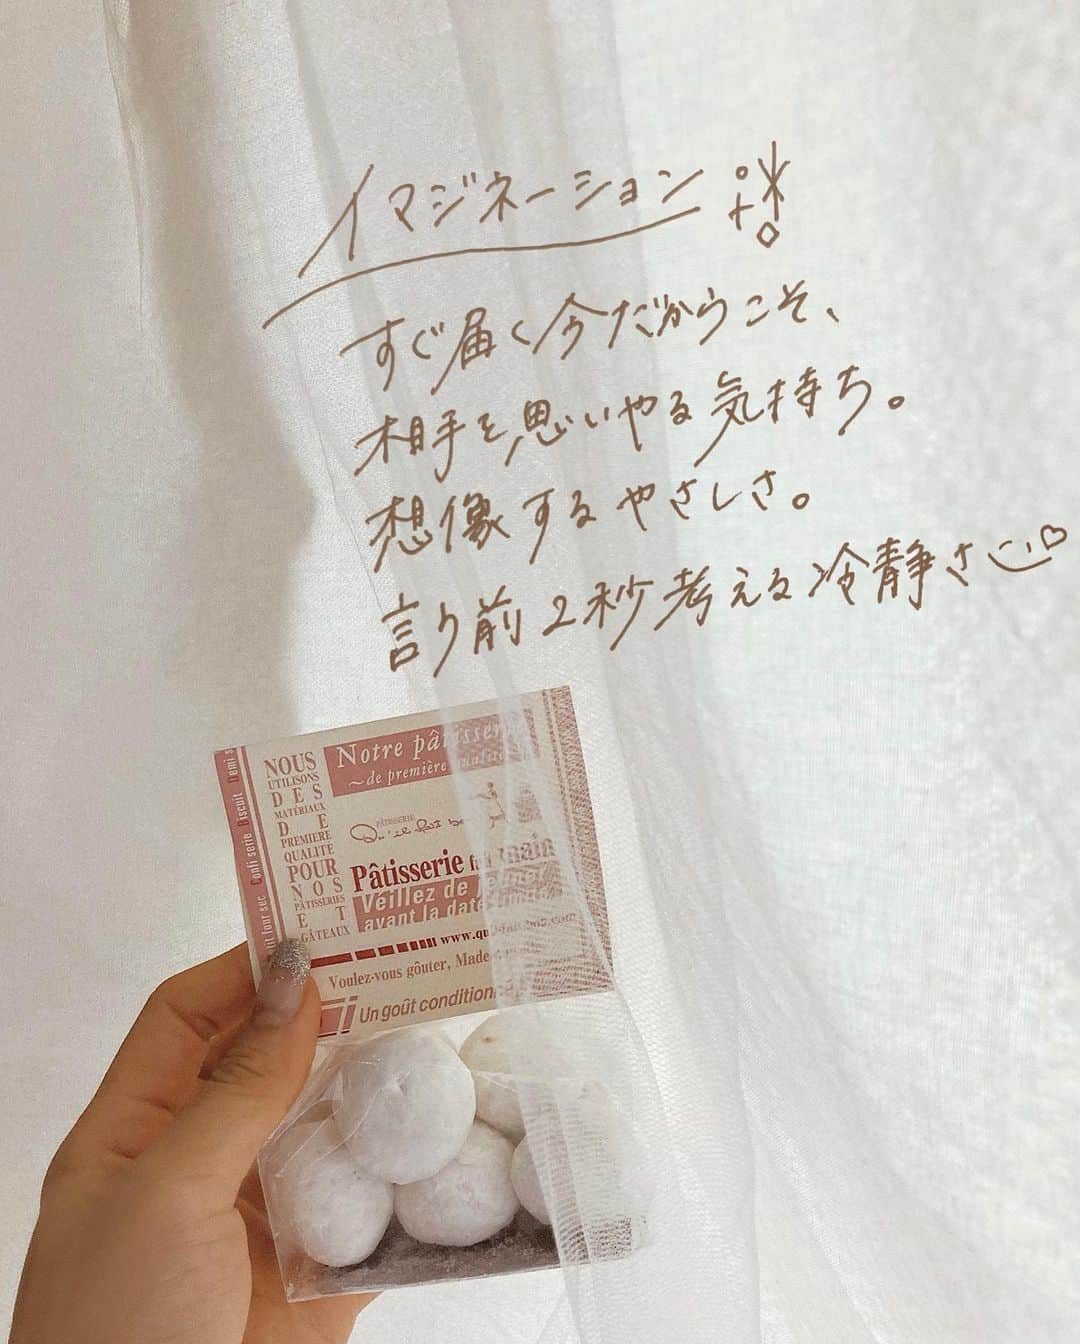 イマジネーション
すぐ届く今だからこそ、
相手を思いやる気持ち。
想像するやさしさ。
言う前2秒考える冷静さ
Notre pâtisserie
～de première qualité
NOUS
UTILISONS
DES
MATÉRIAUX
DE
PREMIERE
QUALITE
POUR
NOS
PÂTISSERIES
ET
GÂTEAUX
Confiserie Biscuit Demi s
four sec
PÂTISSERIE
Qu'il fait bon
Pâtisserie fait main
Veillez de
avant la date
www.quil-fait-bon.com
Voulez-vous goûter, Made
Un goût condition